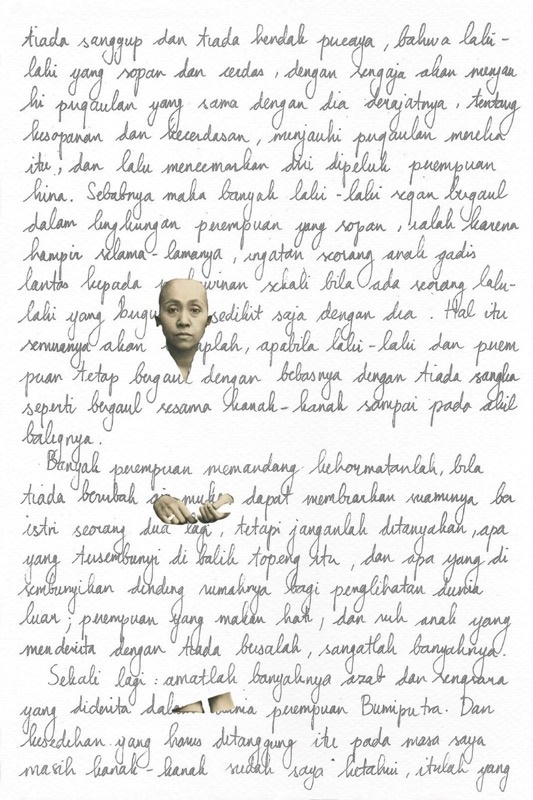 tiada sanggup dan tiada hendak pucaya, bahwa laki-
laki yang sopan dan cerdas, dengan sengaja akan menjau
hi pugaulan yang sama dengan dia derajatnya, tentang
kesopanan dan kecerdasan, menjauhi pugaulan mereka
itu, dan lalu mencemarkan diri dipeluk perempuan
hina. Sebabnya maka banyak laki-laki segan bergaul
dalam lingkungan perempuan yang sopan, ialah karena
hampir selama-lamanya, ingatan seorang anak gadis
lantas kepada winan sekali bila ada seorang laki-
laki yang sedikit saja dengan dia. Hal itu
semuanya akan aplah, apabila laki-laki dan perem
puan tetap bergaul dengan bebasnya dengan tiada sangka
seperti bergaul sesama kanak-kanak sampai pada akil
balignya.
Banyak perempuan memandang kehormatanlah, bila
tiada berubah air muka dapat membiarkan suaminya ber
istri seorang dua lagi, tetapi janganlah ditanyakan, apa
yang tersembunyi di balik topeng itu, dan apa yang di
sembunyikan dinding rumahnya bagi penglihatan dunia
luar; perempuan yang makan hati, dan ruh anak yang
menderita dengan tiada bersalah, sangatlah banyaknya.
Sekali lagi: amatlah banyaknya azab dan sengsara
yang diderita dalam dunia perempuan Bumiputra. Dan
kesedihan yang harus ditanggung itu pada masa saya
masih kanak-kanak sudah saya ketahui, itulah yang